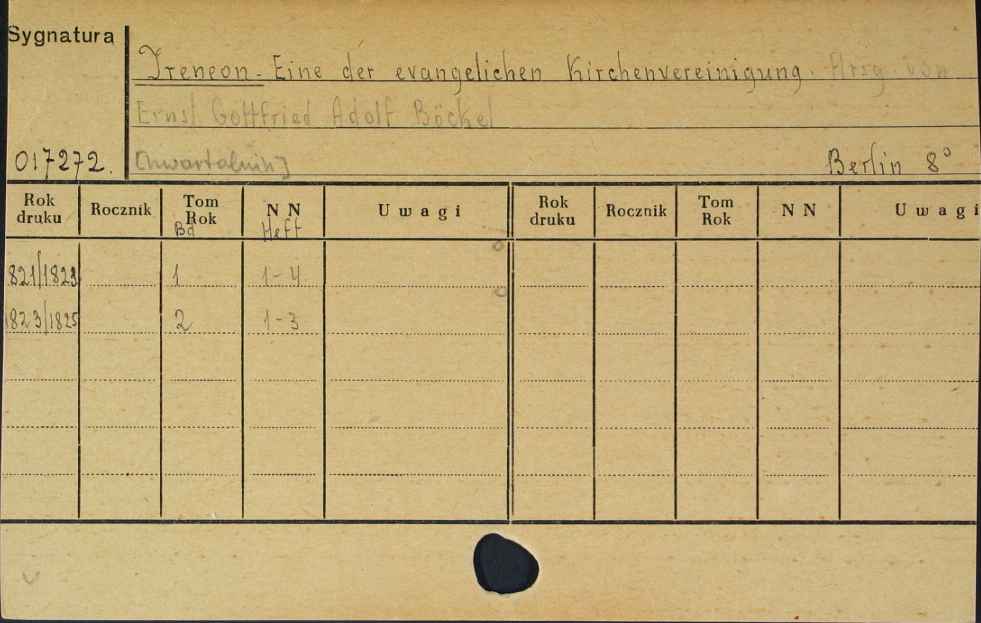 Sygnatura
Ireneon. Eine der evangelichen Kirchenvereinigung. Hrsg. von
Ernst Gottfried Adolf Böckel
017272. [kwartalnik] Berlin 8°
Rok druku Rocznik Tom Rok N N Uwagi Rok druku Rocznik Tom Rok N N Uwagi
Bd Heft
821/1823 1 1-4
1823/1825 2 1-3